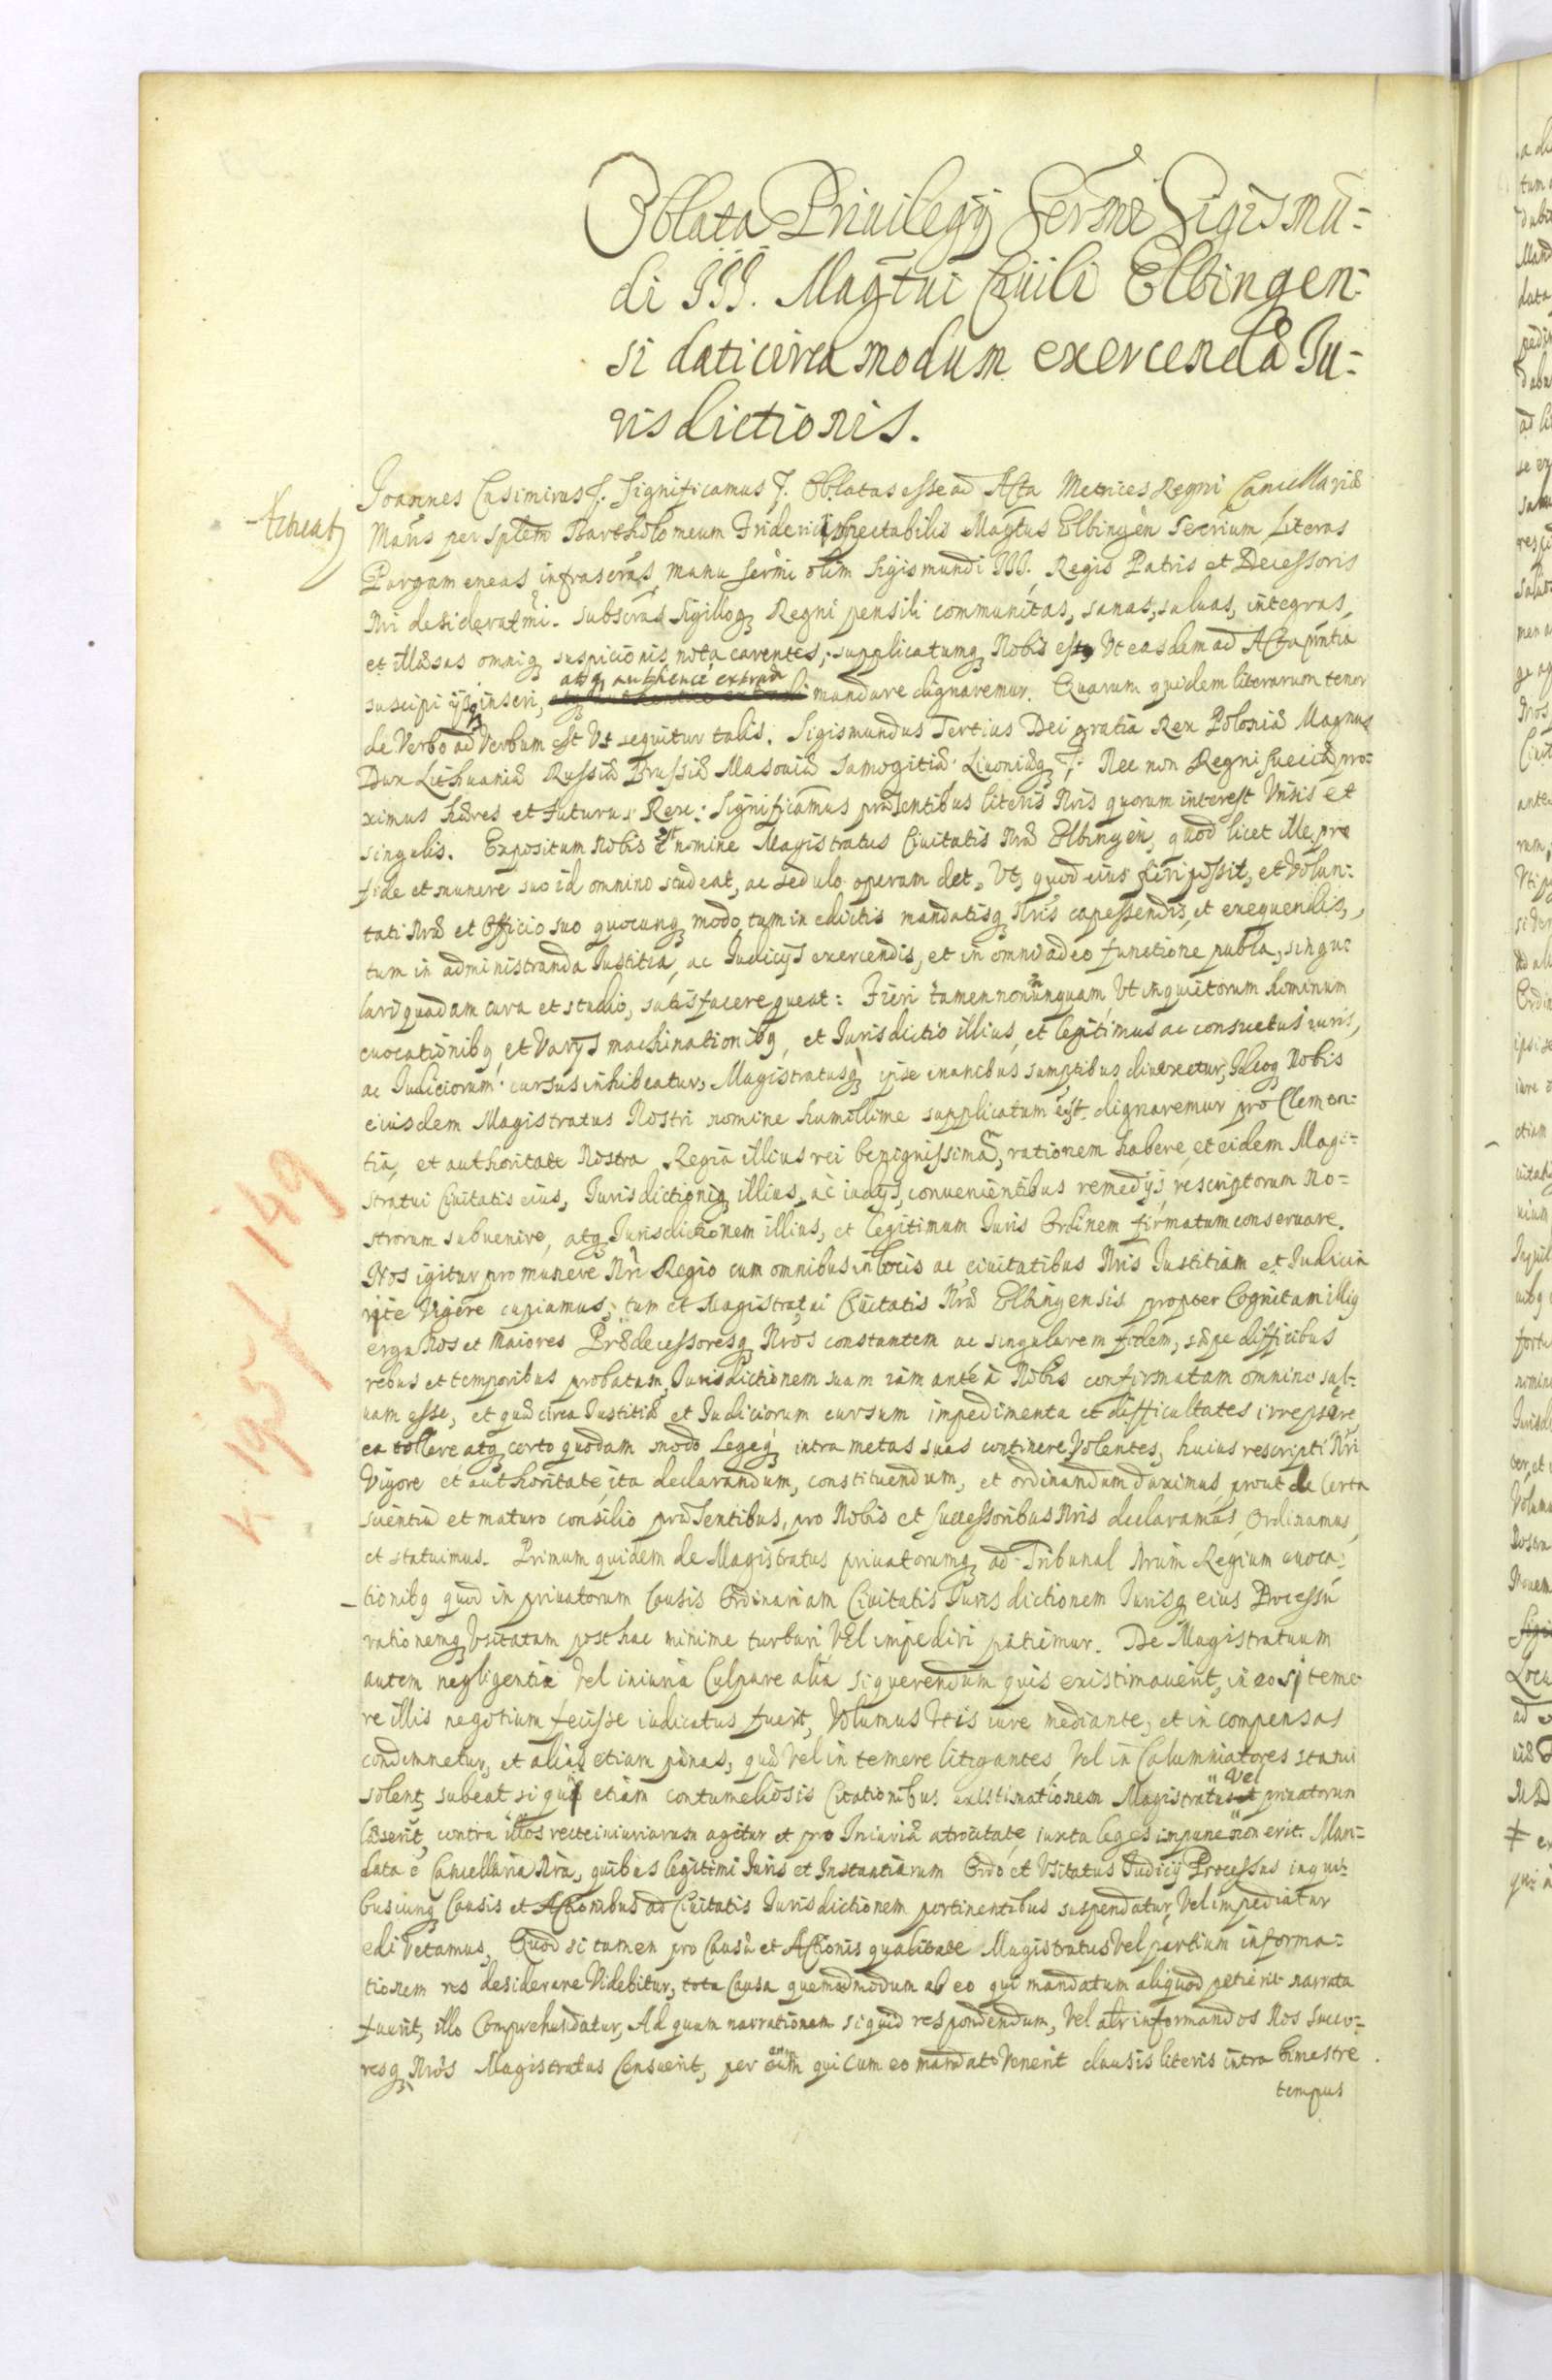 Oblata Priuilegij Sermi Sigismū=
di III. Magtui Ciuili Elbingen=
si dati circa modum exercendæ Ju=
risdictionis.
Joannes Casimirus Significamus Oblatas esse ad Acta Metrices Regni Cancellariæ
Maris per Spectabilis Magtus Elbingen Secrium Literas
Pargameneas infrascras, manu Sermi olim Sigismundi III. Regis Patris et Decessoris
Nri desideratmi. subscras Sigilloq Regni pensili communitas, sanas, saluas, integras,
et illæsas omniq suspicionis nota carentes, supplicatumq Nobis esse, Vt easdem ad Acta pntia
atq authence extradi
suscipi ijsq inseri, mandare dignaremur. Quarum quidem literarum tenor
de Verbo ad Verbum est Vt sequitur talis. Sigismundus Tertius Dei gratia Rex Poloniæ Magnus
Dux Lithuaniæ Russiæ Prussiæ Masouiæ Samogitiæ Liuoniæq Nec non Regni Sueciæ pro=
ximus hæres et futurus Rex: Significamus præsentibus literis Nris quorum interest Vnis et
singulis. Expositum Nobis est nomine Magistratus Ciuitatis Nræ Elbingen, quod licet ille pro
fide et munere suo id omnino studeat, ac sedulo operam det, Vt, quod eius fieri possit, et Volun=
tati Nræ et Officio suo quocunq modo, tum in edictis mandatisq Nris capessendis, et exequendis,
tum in administranda Justitia, ac Judicijs exercendis, et in omni adeo functione publa, singu=
lari quadam cura et studio, satisfacere queat: Fieri tamen nonnunquam Vt inquietorum hominum
euocationibq, et Varijs machinationibq, et Jurisdictio illius, et legitimus ac consuetus iuris,
ac Judiciorum cursus inhibeatur, Magistratusq ipse inanibus sumptibus Ideoq Nobis
eiusdem Magistratus Nostri nomine humillime supplicatum est dignaremur pro Clemen=
tia, et authoritate Nostra Regia illius rei benignissimam, rationem habere, et eidem Magi=
stratui Ciuitatis eius, Jurisdictioniq illius, ac iudijs, convenientibus remedijs, rescriptorum No=
strorum subuenire, atq Jurisdictionem illius, et legitimum Juris Ordinem firmatum conseruare.
Nos igitur pro munere Nri Regio cum omnibus in locis ac ciuitatibus Nris Justitiam et Judicia
rite Vigere cupiamus, tum et Magistratui Ciuitatis Nræ Elbingensis propter Cognitam illiq
erga Nos et Maiores Prædecessoresq Nros constantem ac singularem fidem, sæpe difficibus
rebus et temporibus probatam, Jurisdictionem suam iam ante à Nobis confirmatam omnino sal=
uam esse, et quæ circa Justitiæ et Judiciorum cursum impedimenta et difficultates irrepsere
ea tollere atq certo quodam modo Legeq intra metas suas continere Volentes, huius rescripti Nri
Vigore et authoritate ita declarandum, constituendum, et ordinandum duximus, prout de Certa
scientia et maturo consilio præsentibus, pro Nobis et Successoribus Nris declaramus, Ordinamus,
et statuimus. Primum quidem de Magistratus priuatorumq ad Tribunal Nrum Regium euoca=
tionibq quod in priuatorum Causis Ordinariam Ciuitatis Jurisdictionem Jurisq eius Processū
rationemq Vsitatam posthac minime turbari Vel impediri patiemur. De Magistratuum
autem negligentia Vel iniuria Culpaue alia si querendum quis existimauerit, in eo si teme=
re illis negotium fecisse iudicatus fuerit, Volumus Vt is iure mediante, et in compensas
condemnetur, et alias etiam pænas, quæ Vel in temere litigantes, Vel in Calumniatores statui
solent, subeat si quis etiam contumeliosis Citationibus existimationem Magistratus Vel priuatorum
læserit, contra illos recte iniuriarum agitur et pro Iniuriæ atrocitate, iuxta leges impune non erit. Man=
data è Cancellaria Nra, quibus legitimi Juris et Instantiarum Ordo et Vsitatus Judicij Processus in qui=
buscunq Causis et Actionibus ad Ciuitatis Jurisdictionem pertinentibus suspendatur, Vel impediatur
edi Vetamus, Quod si tamen pro Causæ et Actionis qualitate Magistratus Vel partium informa=
tionem res desiderare Videbitur, tota Causa quemadmodum ab eo qui mandatum aliquod petierit narrata
fuerit, illo Comprehendatur, Ad quam narrationem si quid respondendum, Vel Nos Succes=
resq Nros Magistratus Censuerit, per eum qui Cum eo mandato Venerit clausis literis intra bimestre
tempus
k 195 f 149